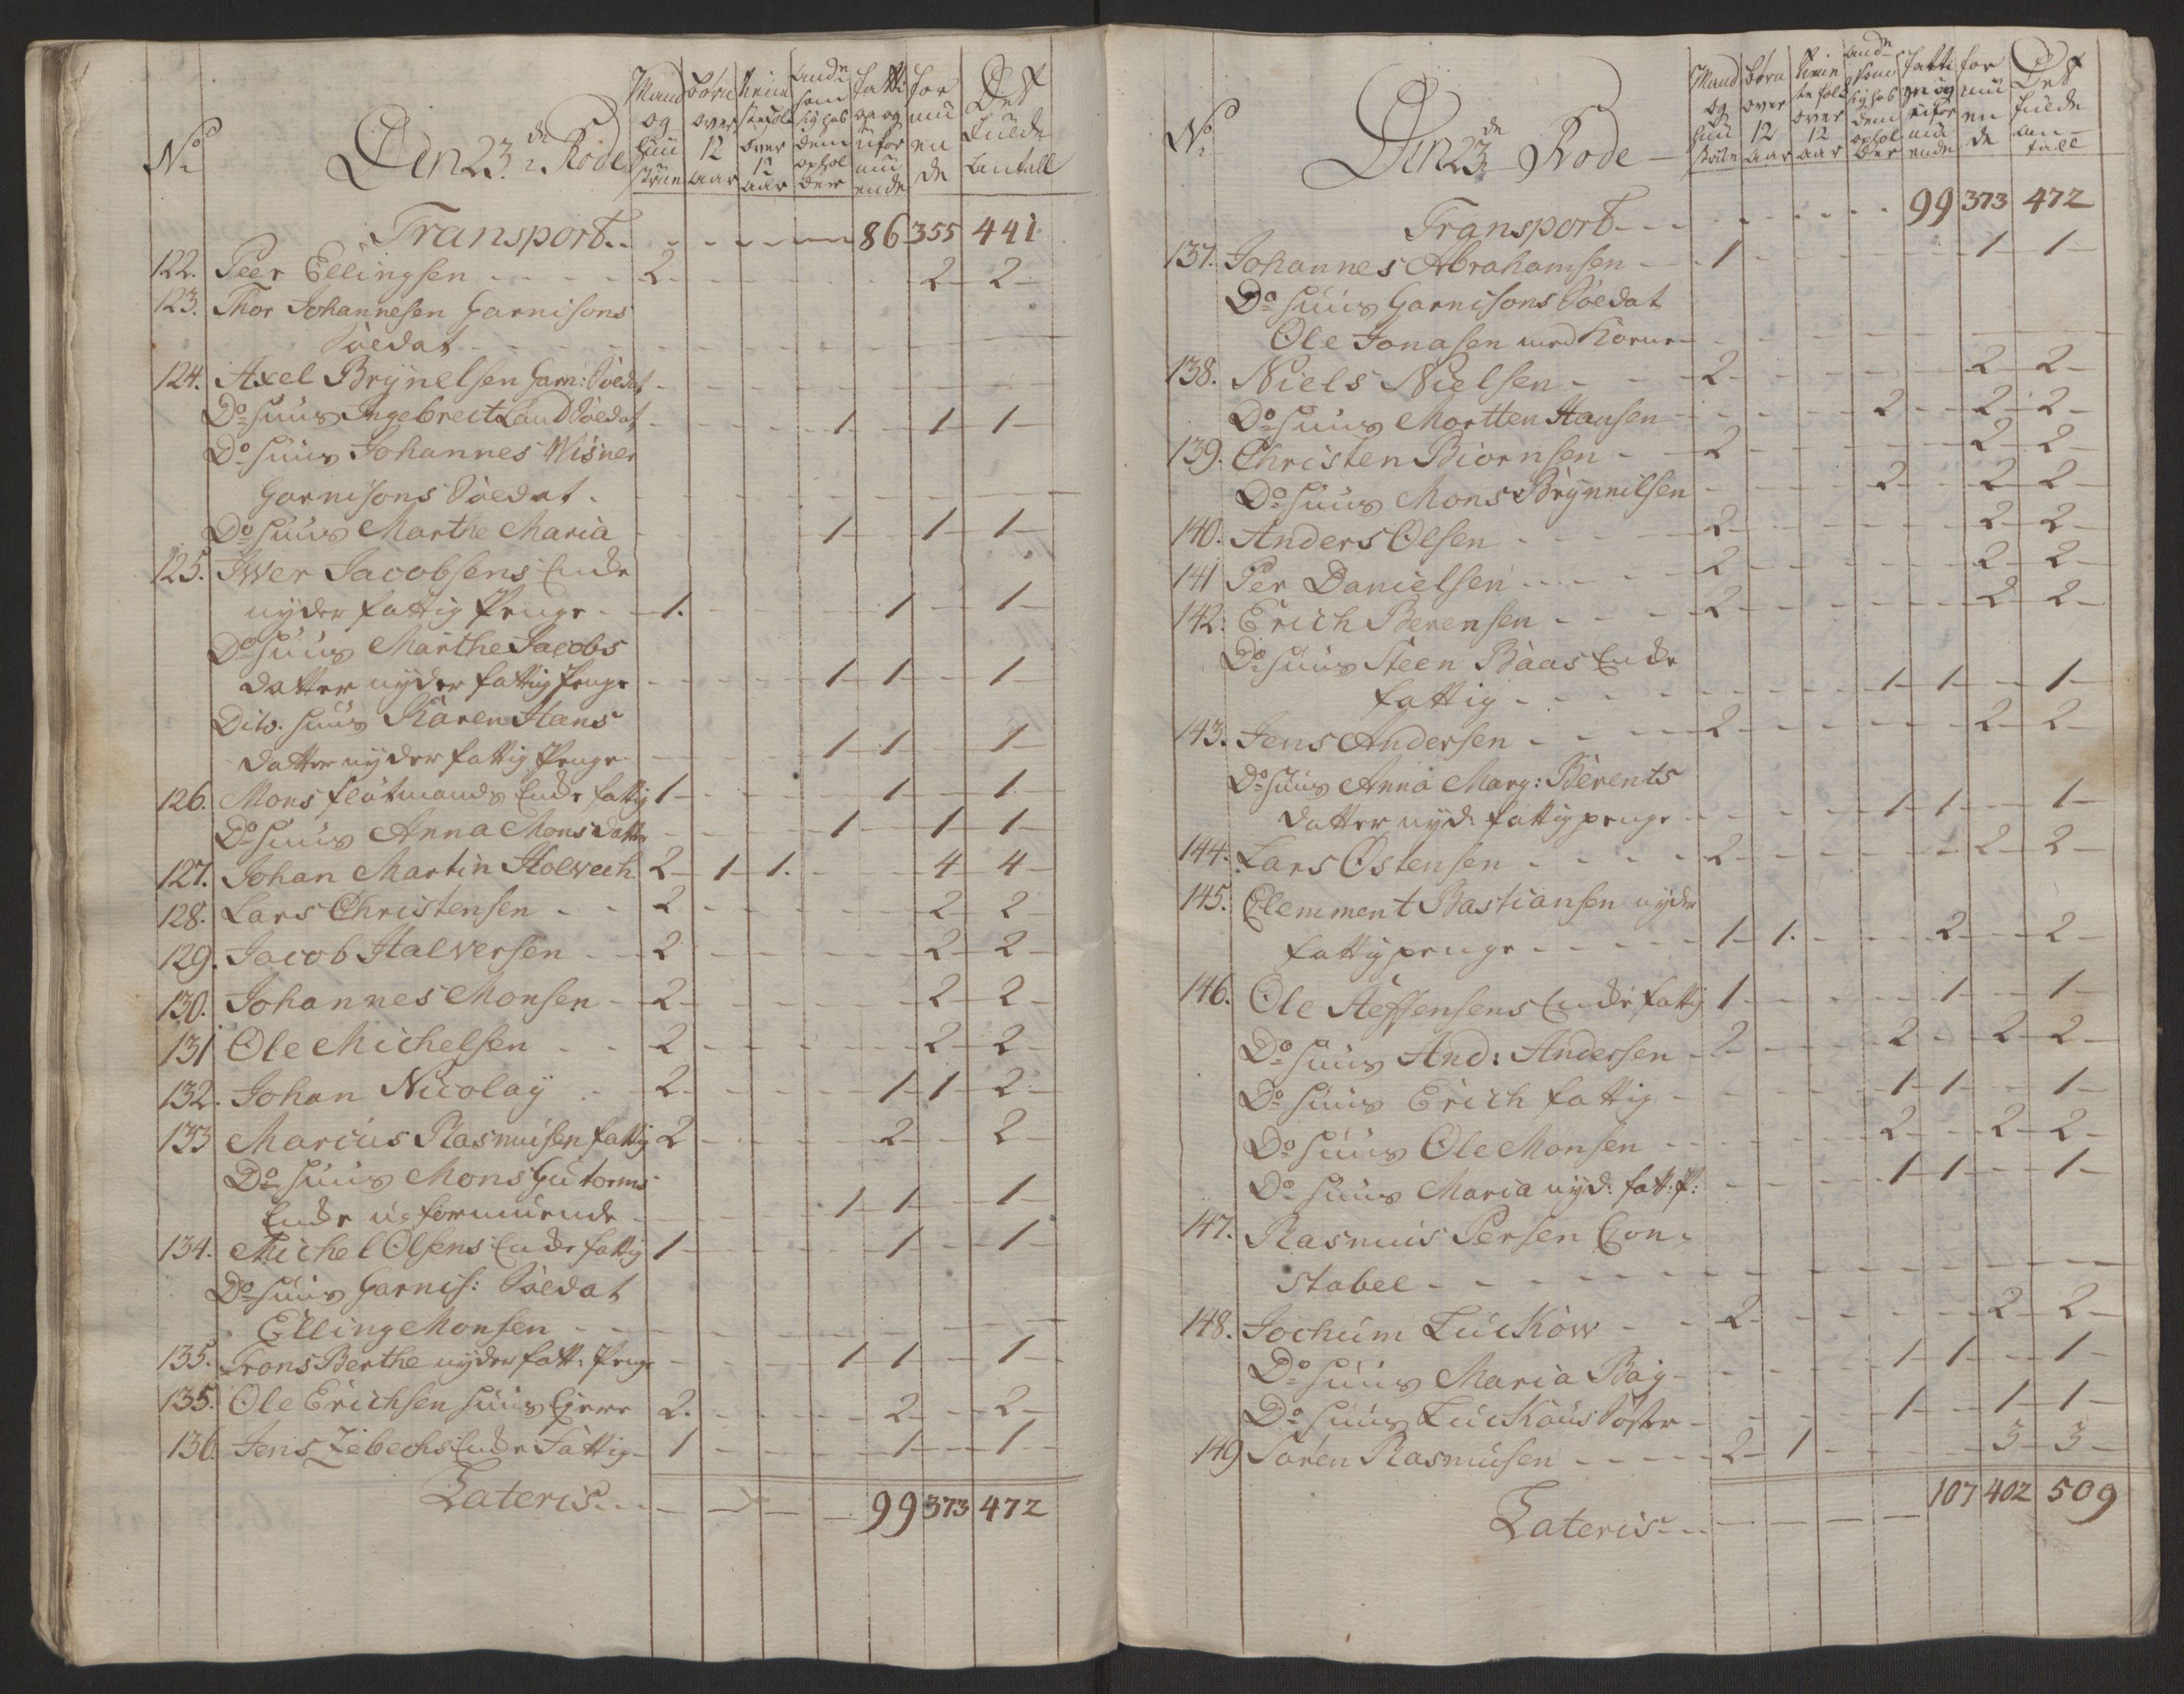 No
Den 23de Rode
Mand og Huu strue
børn over 12 aar
tienistefolk over 12 aar
ande som sig hos dem ophol der
fatti ge og uformu ende
for mu en de
Det fulde Antall
Transport - - - 86 355 441
122. Peer Ellingsen - - - 2 - 2 - 2 -
123. Thor Johannesen Garnisons
Soldat - - -
124. Axel Brynelsen Garn: Soldat -
Do huus Ingebreit Land Soldat - 1 - 1 - 1 -
Do huus Johannes Wisner
Garnisons Soldat -
Do huus Marthe Maria - 1 - 1 - 1 -
125. Iwer Jacobsens Enke
nyder fattig Penge - 1. - 1 - 1 -
Do huus Marthe Jacobs
datter nyder fattig Penge - 1 - 1 - 1 -
Dito. huus Karen Hans
datter nyder fattig Penge - 1 - 1 - 1 -
126. Mons fløtmands Enke fattig 1 - 1 - 1 -
Do huus Anna Mons datter - 1 - 1 - 1 -
127. Johan Martin Holvech 2 - 1 - 1. - 4 - 4 -
128. Lars Christensen - - 2 - 2 - 2 -
129. Jacob Halversen - 2 - 2 - 2 -
130. Johannes Monsen - 2 - 2 - 2 -
131 Ole Michelsen - - 2 - 2 - 2 -
132. Johan Nicolay - 2 - 1 - 1 - 2 -
133 Marcus Rasmusen fattig 2 - 2 - 2 -
Do huus Mons Gutorms
Enke uformuende - 1 - 1 - 1 -
134. Michel Olsens Enke fattig 1 - 1 - 1 -
Do huus Garnis: Soldat
Elling Monsen - -
135. Trons Berthe nyder fatt: Penge - 1 - 1 - 1 -
135. Ole Erichsen huus 2. - 2 - 2 -
136. Jens Zebechs Enke Fattig - 1 - 1 - 1 -
Lateris - - - 99 373 472
No
Den 23de Rode -
Mand og huu strue
børn over 12 aar
tienistefolk over 12 aar
ande som sig hos dem ophol der
fatti ge og uformu ende
for mu en de
Det fulde Antall
Transport - - - 99 373 472
137. Johannes Abrahamsen - 1 - 1 - 1 -
Do huus Garnisons Soldat
Ole Jonasen med Kone -
138. Niels Nielsen - - 2 - 2 - 2 -
Do huus Mortten Hansen - 2 - 2 - 2 -
139. Christen Biørnsen - 2 - 2 - 2 -
Do huus Mons Brynnilsen - 2 - 2 - 2 -
140. Anders Olsen - - 2 - 2 - 2 -
141 Per Danielsen - - 2 - 2 - 2 -
142. Erich Berensen - - 2 - 2 - 2 -
Do huus Steen Baas Enke
fattig - - - 1 - 1 - 1 -
143. Jens Andersen - - 2 - 2 - 2 -
Do huus Anna Marg: Berents
datter nyd: fattig penge - 1 - 1 - 1 -
144. Lars Østensen - - 2 - 2 - 2 -
145. Clemment Bastiansen nyder
fattig penge - - 1 - 1. - 2 - 2 -
146. Ole Steffensens Enke fattig 1 - 1 - 1 -
Do huus And: Andersen - 2 - 2 - 2 - 2 -
Do huus Erich fattig - 1 - 1 - 1 -
Do huus Ole Monsen - 2 - 2 - 2 -
Do huus Maria nyd: fatt: P: - 1 - 1 - 1 -
147. Rasmus Persen Con-
stabel - - -
148. Jochum Luckow - - 2 - 2 - 2 -
Do huus Maria Bay - 1 - 1 - 1 -
Do huus Luckous Søster - 1 - 1 - 1 -
149 Søren Rasmusen - - 2 - 1 - 3 - 3 -
Lateris - - - 107 402 509